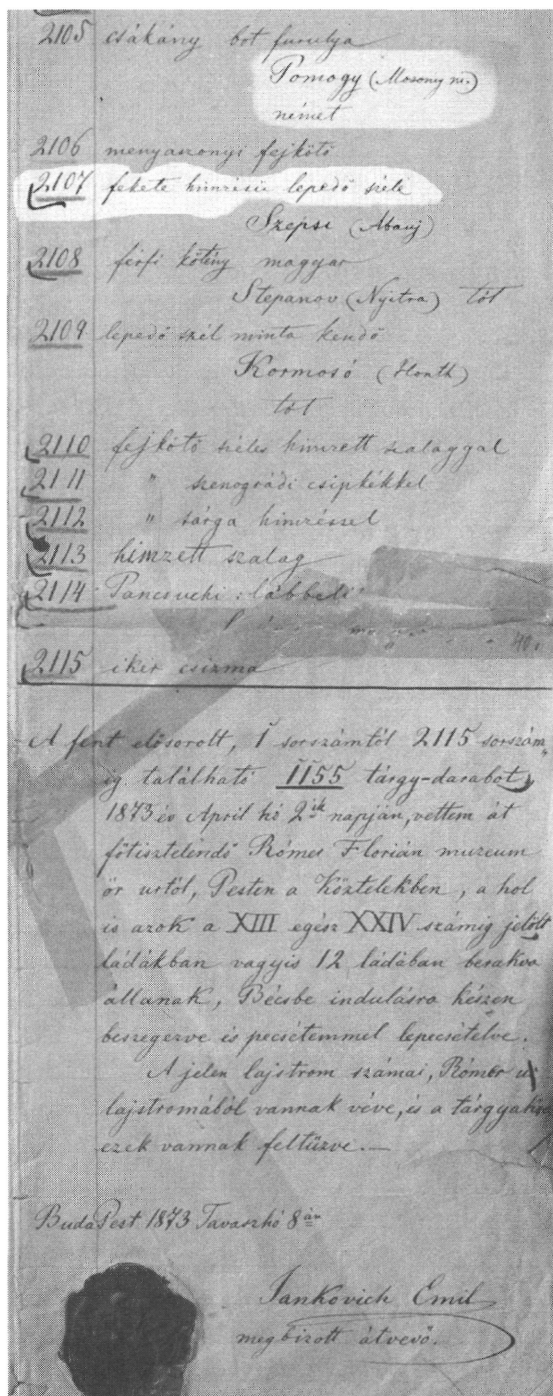 2105 csákány bot furulya
Pomogy (Mosony m.)
német
2106 menyaszonyi fejkötő
2107 fekete himzésü lepedő széle
Szepsi (Abauj)
2108 férfi kötény magyar
Stepanov (Nyitra) tót
2109 lepedő szél minta kendő
Kormosó (Honth)
tót
2110 fejkötő széles himzett szalaggal
2111 " szenográdi csipkékkel
2112 " sárga himzéssel
2113 himzett szalag
2114 lábbeli
2115 iker csizma
A fent elősorolt, 1 sorszámtól 2115 sorszám„
ig található 1155 tárgy-darabot
1873 év April hó 2ik napján, vettem át
főtisztelendő Rómer Florián muzeum
őr urtól, Pesten a Köztelekben, a hol
is azok a XIII egész XXIV számig jelölt
ládákban vagyis 12 ládában berakva
állanak, Bécsbe indulásra készen
beszegezve és pecsétemmel lepecsételve.
A jelen lajstrom számai, Rómer ur
lajstromából vannak véve, és a tárgyakra
ezek vannak feltüzve.—
BudaPest 1873 Tavaszhó 8án
Jankovich Emil
megbizott átvevő.